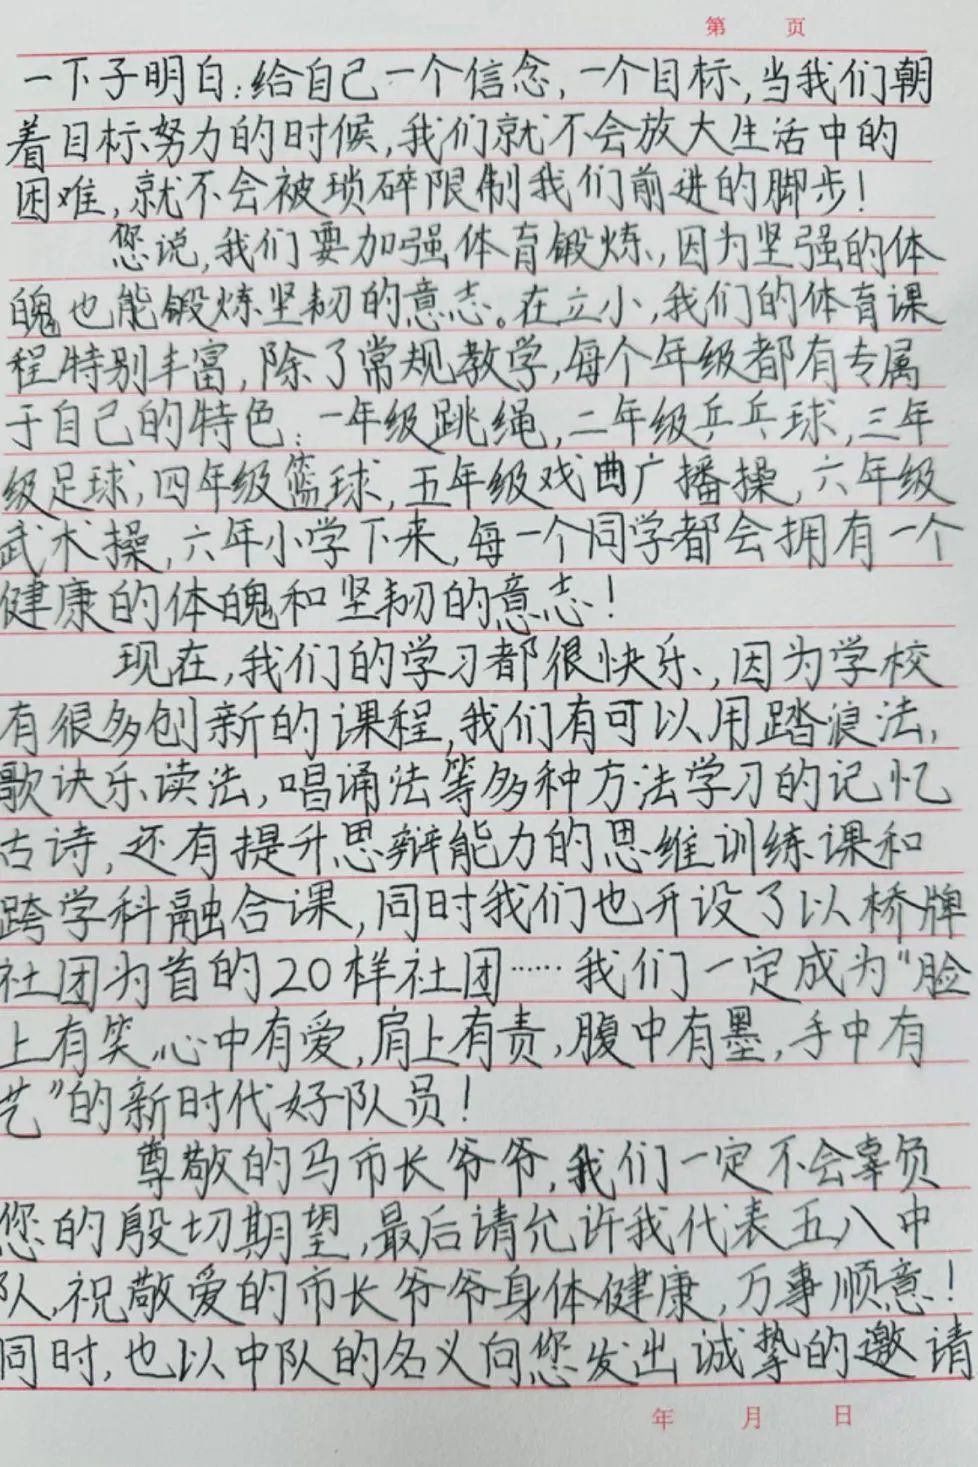 第 页
一下子明白:给自己一个信念,一个目标,当我们朝
着目标努力的时候,我们就不会放大生活中的
困难,就不会被琐碎限制我们前进的脚步!
您说,我们要加强体育锻炼,因为坚强的体
魄也能锻炼坚韧的意志。在立小,我们的体育课
程特别丰富,除了常规教学,每个年级都有专属
于自己的特色:一年级跳绳,二年级乒乓球,三年
级足球,四年级篮球,五年级戏曲广播操,六年级
武术操,六年小学下来,每一个同学都会拥有一个
健康的体魄和坚韧的意志!
现在,我们的学习都很快乐,因为学校
有很多创新的课程,我们有可以用踏浪法,
歌诀乐读法,唱诵法等多种方法学习的记忆
古诗,还有提升思辩能力的思维训练课和
跨学科融合课,同时我们也开设了以桥牌
社团为首的20样社团……我们一定成为“脸
上有笑,心中有爱,肩上有责,腹中有墨,手中有
艺”的新时代好队员!
尊敬的马市长爷爷,我们一定不会辜负
您的殷切期望,最后请允许我代表五八中
队,祝敬爱的市长爷爷身体健康,万事顺意!
同时,也以中队的名义向您发出诚挚的邀请
年 月 日